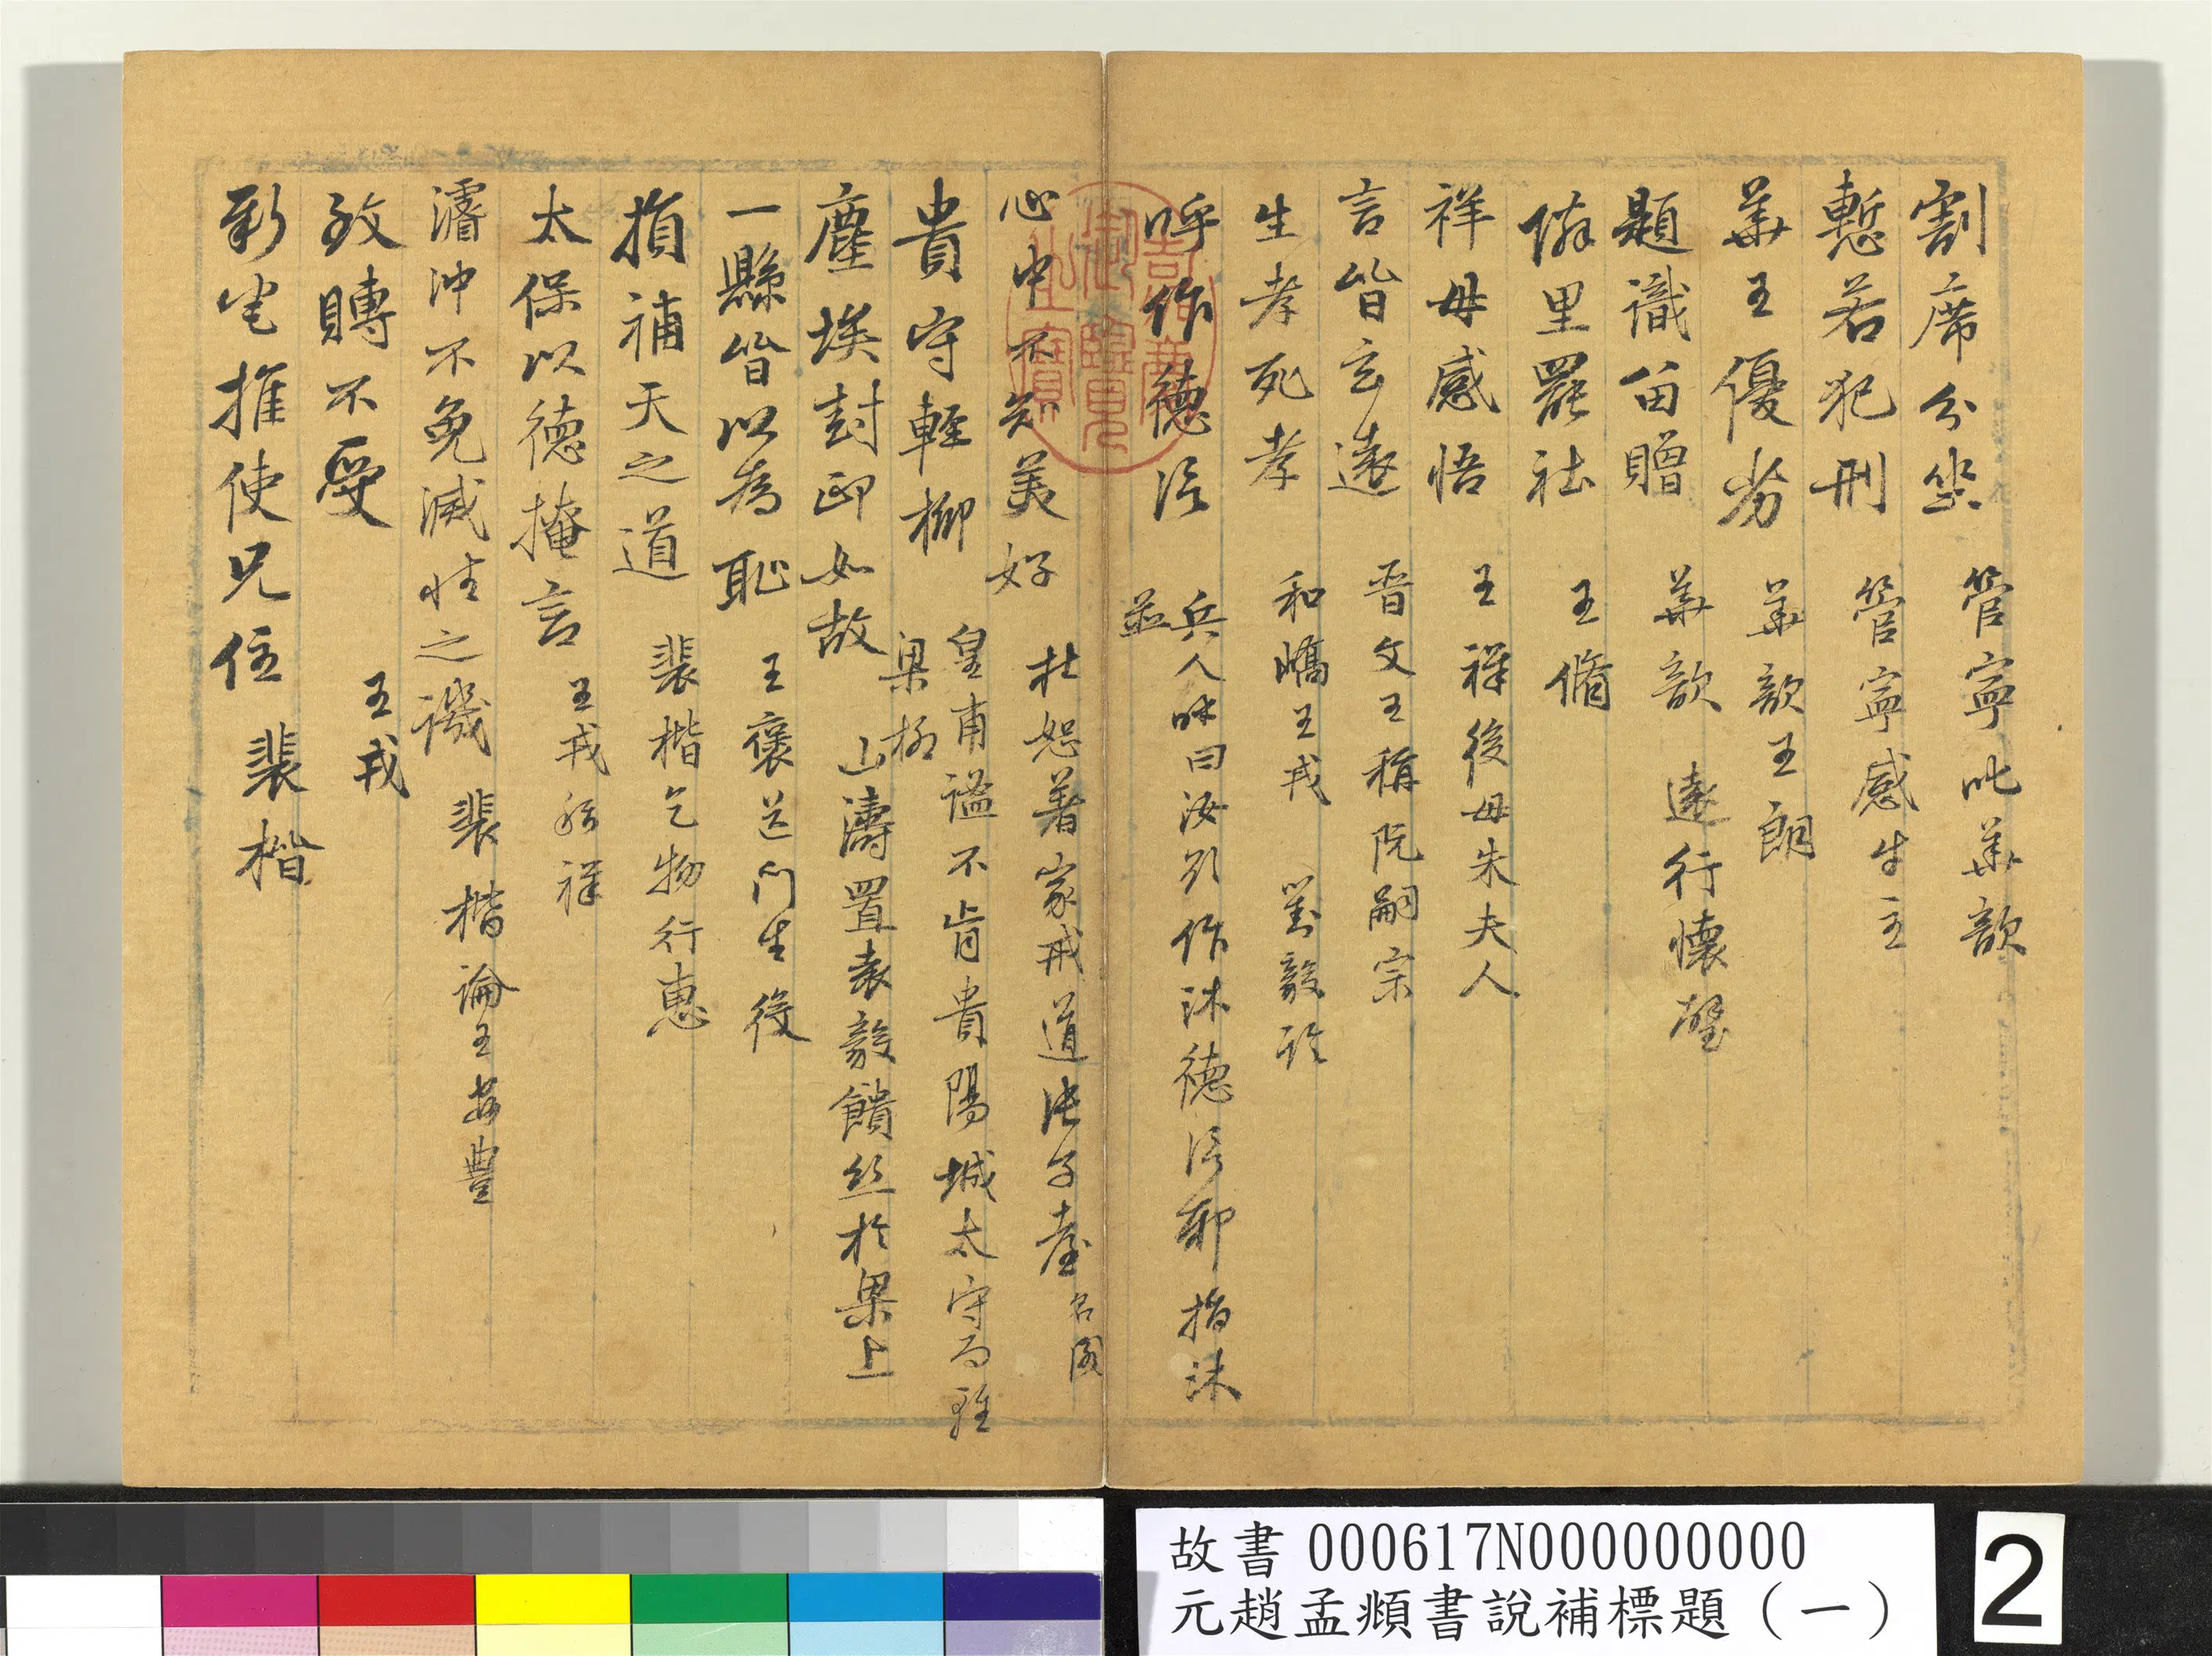 割席分坐 管寧叱華歆
慙若犯刑 管寧感牛主
華王優劣 華歆王朗
題識留贈 華歆 遠行懷璧
隣里罷社 王脩
祥母感悟 王祥後母朱夫人
言皆玄遠 晉文王稱阮嗣宗
生孝死孝 和嶠王戎 劉毅評
呼作德
兵人 曰汝 作沐德 耶指沐
並
心中不知美好 杜恕著家戒道張子臺 名閣
貴守輕柳 皇甫謐不肯貴陽城太守而雅
梁柳
塵埃封印如故 山濤置袁毅饋絲於梁上
一縣皆以為恥 王褒送門生役
損補天之道 裴楷乞物行惠
太保以德掩言 王戎 祥
濬沖不免滅性之譏 裴楷論王安豐
致賻不受 王戎
推使兄住 裴楷
吉慶
御覽
之寶
故書000617N000000000
元趙孟頫書說補標題(一)
2